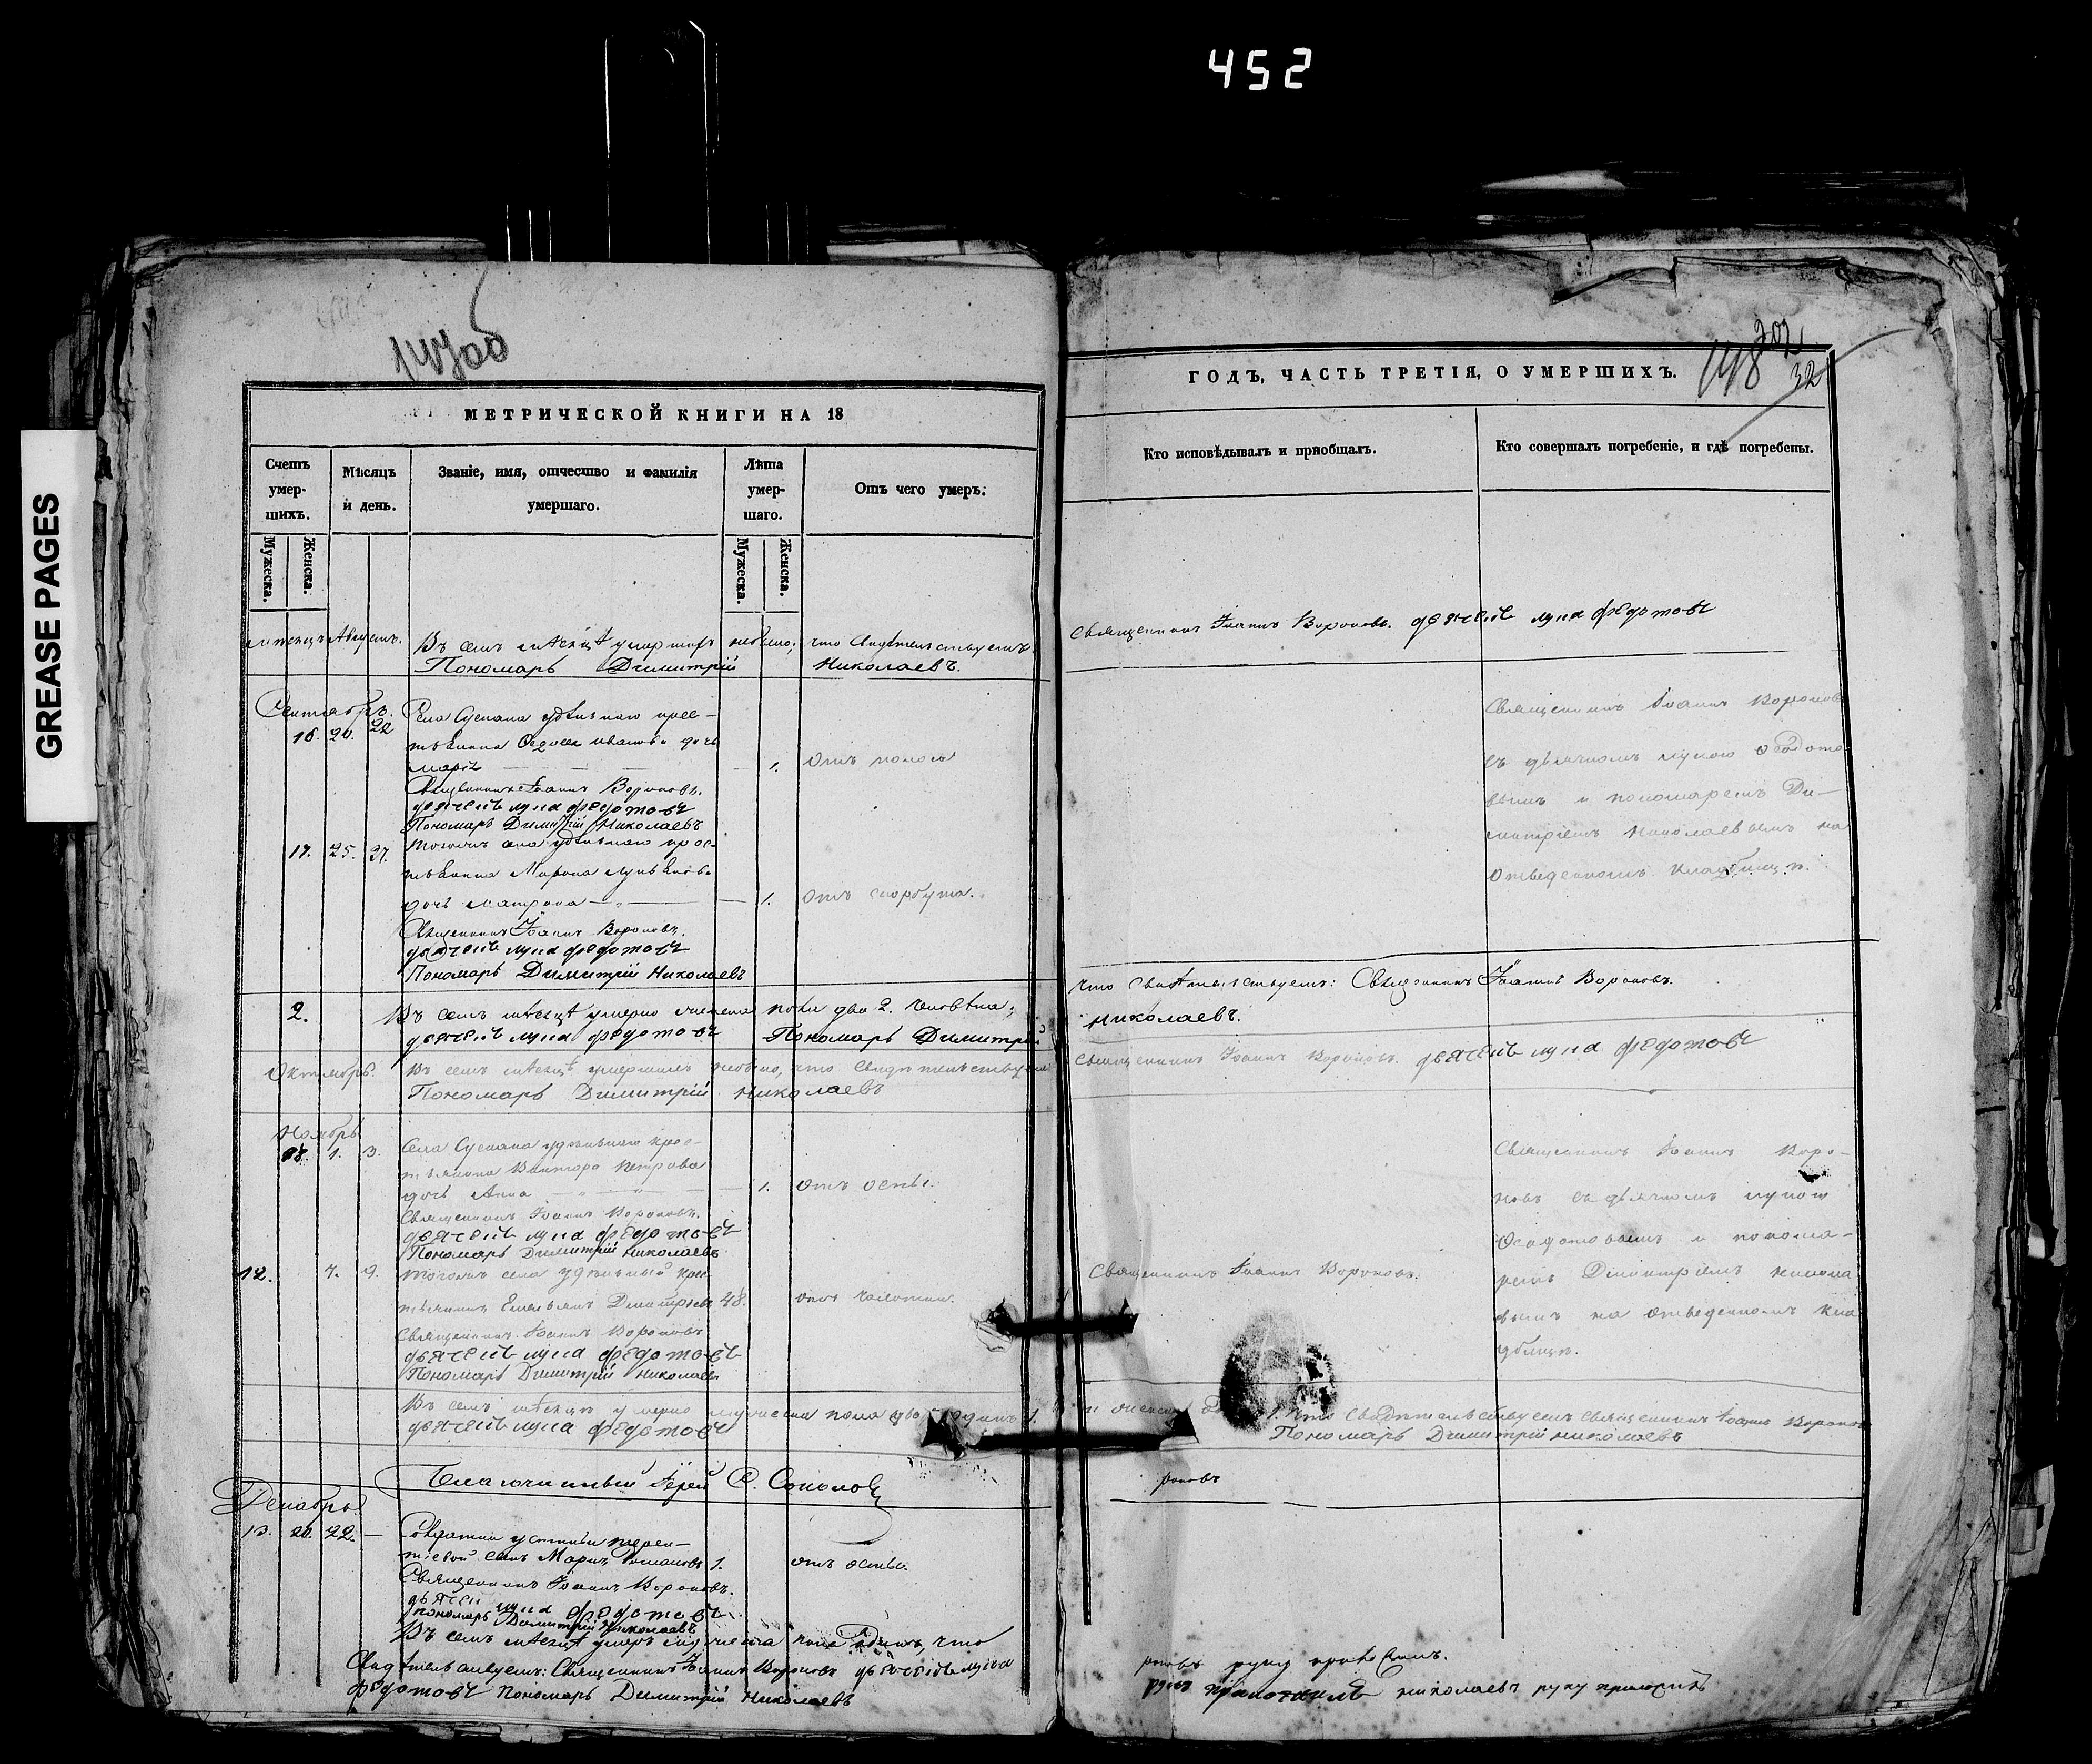 452
GREASE PAGES
147об
202
148 32
МЕТРИЧЕСКОЙ КНИГИ НА 18
Счетъ умер-шихъ.
Мѣсяцъ и день.
Званіе, имя, отчество и фамилія умершаго.
Лѣта умер-шаго.
Отъ чего умеръ:
Мужеска.
Женска.
Мужеска.
Женска.
мѣсяцъ Августъ. Въ семъ мѣсяцѣ умершихъ небыло; что свидѣтельствуетъ
Пономарь Димитрій Николаевъ.
Сентябрь.
16. 20. 22 Села Сускана удѣльнаго крес-
тьянина Ѳедосея Иванова дочь
Марія 1. отъ поноса
Священникъ Іоаннъ Вороновъ.
дьячекъ лука федотовъ
Пономарь Димитрій Николаевъ
17. 25. 27. тогожъ села удѣльнаго крес-
тьянина Мирона Лукьянова
дочь Матрона 1. отъ скорбута.
Священникъ Іоаннъ Вороновъ.
дьячекъ лука федотовъ
Пономарь Димитрій Николаевъ
2. Въ семъ мѣсяцѣ умерло женска пола два 2. человѣка;
дьячекъ лука федотовъ Пономарь Димитрій
Октябрь. Въ семъ мѣсяцѣ умершихъ небыло, что свидѣтельствуетъ
Пономарь Димитрій Николаевъ
Ноябрь
18. 1. 3. Села Сускана удѣльнаго крес-
тьянина Виктора Петрова
дочь Анна 1. отъ оспы.
Священникъ Іоаннъ Вороновъ.
дьячекъ лука федотовъ
Пономарь Димитрій Николаевъ
12. 7. 9. тогожъ села удѣльный крес-
тьянинъ Емельянъ Димитріевъ 48. отъ чахотки.
Священникъ Іоаннъ Вороновъ
дьячекъ лука федотовъ
Пономарь Димитрій Николаевъ
Въ семъ мѣсяцѣ умерло мужеска пола одинъ 1.
дьячекъ лука федотовъ
Благочинный Іерей С. Соколовъ
Декабрь
13. 20. 22.
сынъ 1. отъ оспы.
Священникъ Іоаннъ Вороновъ.
дьячекъ лука федотовъ
пономарь Димитрій Николаевъ
Въ семъ мѣсяцѣ умеръ мужеска пола одинъ, что
Свидѣтельствуетъ: Священникъ Іоаннъ Вороновъ дьячекъ лука
федотовъ Пономарь Димитрій Николаевъ
ГОДЪ, ЧАСТЬ ТРЕТІЯ, О УМЕРШИХЪ.
Кто исповѣдывалъ и приобщалъ.
Кто совершалъ погребеніе, и гдѣ погребены.
священникъ Іоаннъ Вороновъ. дьячекъ лука федотовъ
Священникъ Іоаннъ Вороновъ
съ дьячкомъ лукою Ѳедото-
вымъ и пономаремъ Ди-
митріемъ Николаевымъ на
отведенномъ кладбищѣ.
что свидѣтельствуетъ: Священникъ Іоаннъ Вороновъ.
Николаевъ.
священникъ Іоаннъ Вороновъ. дьячекъ лука федотовъ
Священникъ Іоаннъ Воро-
новъ съ дьячкомъ лукою
Ѳедотовымъ и понома-
ремъ Димитріемъ Никола
вымъ на отведенномъ кла
дбищѣ.
Священникъ Іоаннъ Вороновъ.
и женска 1. что свидѣтельствуетъ священникъ Іоаннъ Вороновъ
Пономарь Димитрій Николаевъ
роновъ
роновъ руку приложилъ.
руку приложилъ николаевъ руку приложилъ